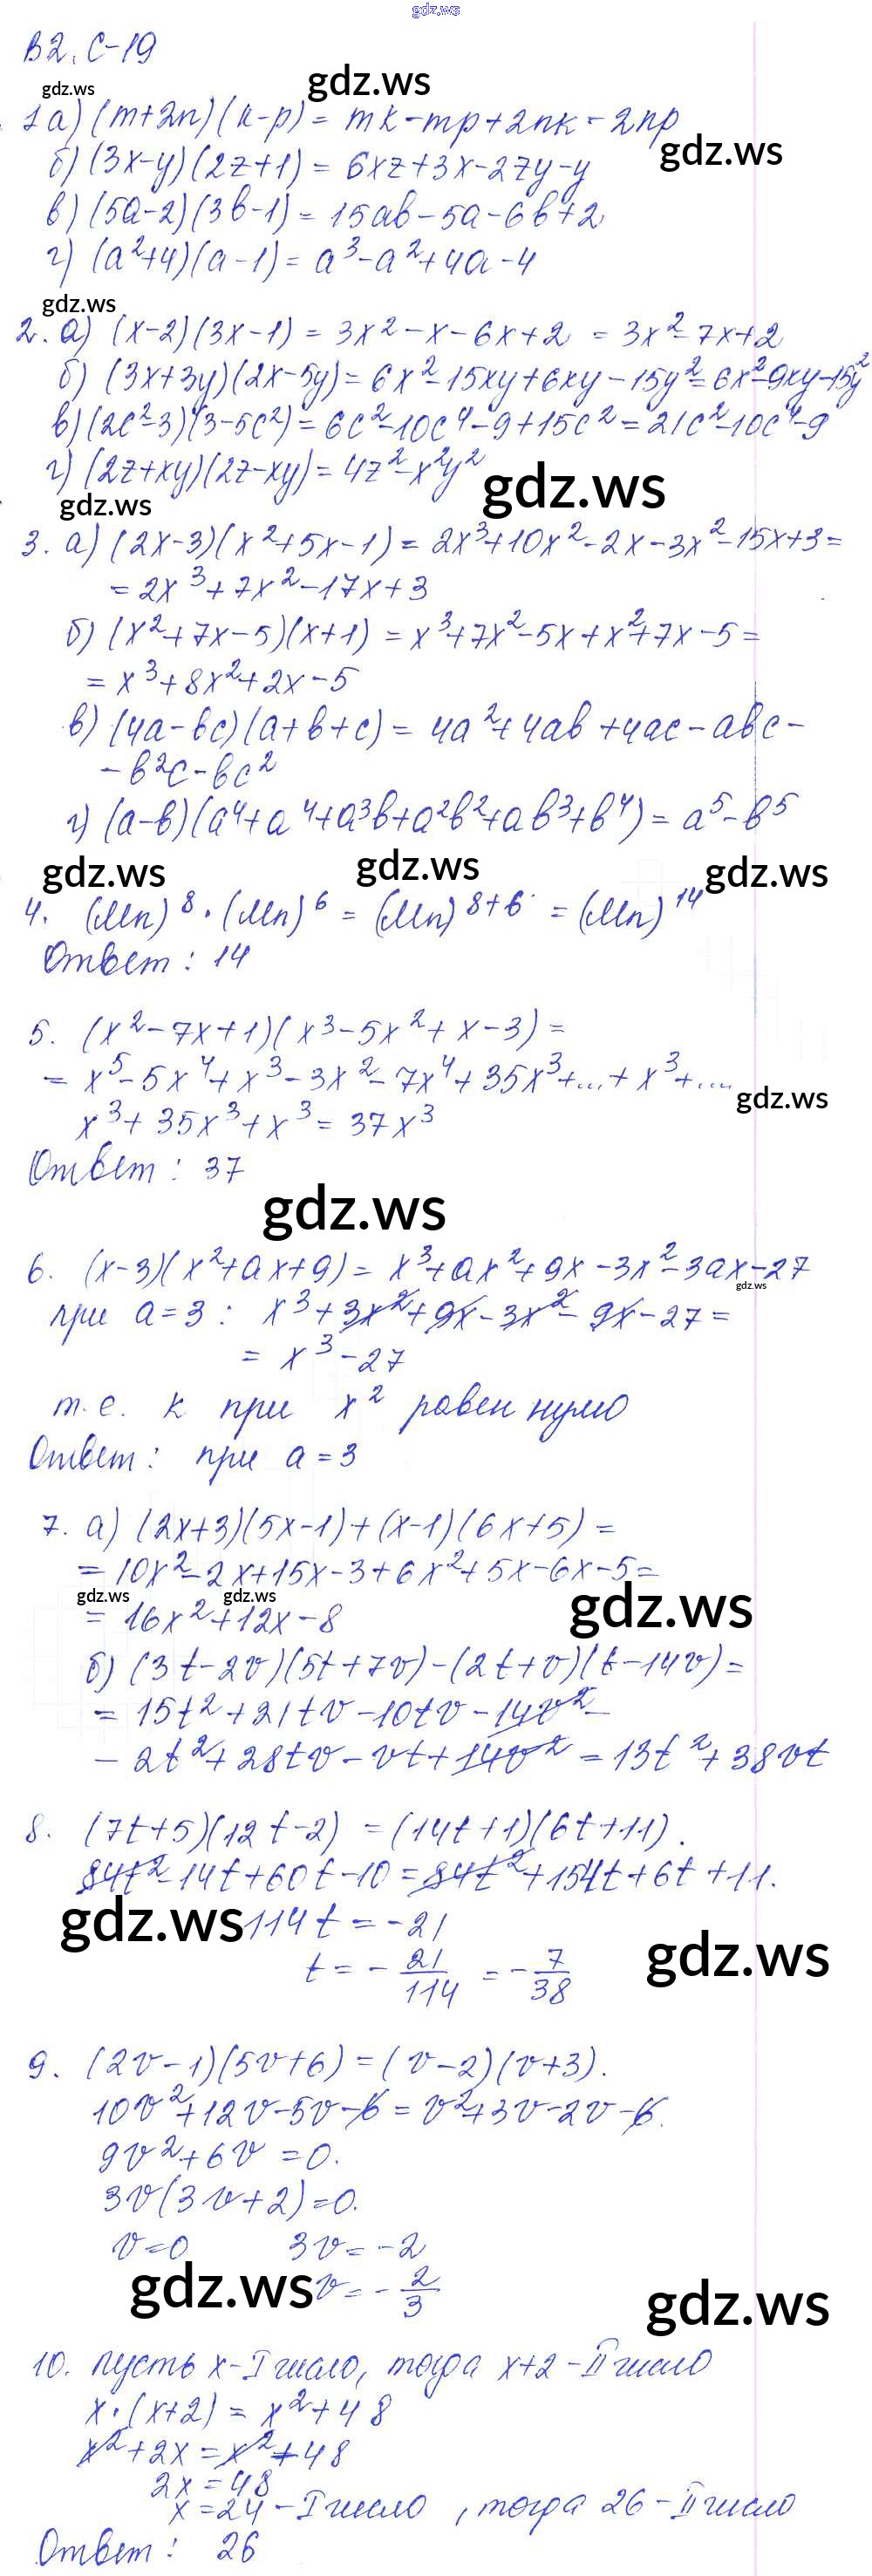 gdz.ws
В2. С-19
gdz.ws gdz.ws
1 а) (m+2n)(k-p) = mk-mp+2nk-2np
gdz.ws
б) (3x-y)(2z+1) = 6xz+3x-2zy-y
в) (5a-2)(3b-1) = 15ab-5a-6b+2
г) (a²+4)(a-1) = a³-a²+4a-4
gdz.ws
2. а) (x-2)(3x-1) = 3x²-x-6x+2 = 3x²-7x+2
б) (3x+3y)(2x-5y) = 6x²-15xy+6xy-15y² = 6x²-9xy-15y²
в) (2c²-3)(3-5c²) = 6c²-10c⁴-9+15c² = 21c²-10c⁴-9
г) (2z+xy)(2z-xy) = 4z²-x²y²
gdz.ws gdz.ws
3. а) (2x-3)(x²+5x-1) = 2x³+10x²-2x-3x²-15x+3 =
= 2x³+7x²-17x+3
б) (x²+7x-5)(x+1) = x³+7x²-5x+x²+7x-5 =
= x³+8x²+2x-5
в) (4a-bc)(a+b+c) = 4a²+4ab+4ac-abc-
-b²c-bc²
г) (a-b)(a⁴+a⁴+a³b+a²b²+ab³+b⁴) = a⁵-b⁵
gdz.ws gdz.ws gdz.ws
4. (Mn)⁸·(Mn)⁶ = (Mn)⁸⁺⁶ = (Mn)¹⁴
Ответ: 14
5. (x²-7x+1)(x³-5x²+x-3) =
= x⁵-5x⁴+x³-3x²-7x⁴+35x³+...+x³+....
gdz.ws
x³+35x³+x³ = 37x³
Ответ: 37
gdz.ws
6. (x-3)(x²+ax+9) = x³+ax²+9x-3x²-3ax-27
gdz.ws
при a=3: x³+3x²+9x-3x²-9x-27 =
= x³-27
т.е. к при x² равен нулю
Ответ: при a=3
7. а) (2x+3)(5x-1)+(x-1)(6x+5) =
= 10x²-2x+15x-3+6x²+5x-6x-5 =
gdz.ws gdz.ws gdz.ws
= 16x²+12x-8
б) (3t-2v)(5t+7v)-(2t+v)(t-14v) =
= 15t²+21tv-10tv-14v²-
-2t²+28tv-vt+14v² = 13t²+38vt
8. (7t+5)(12t-2) = (14t+1)(6t+11).
84t²-14t+60t-10 = 84t²+154t+6t+11.
gdz.ws 114t = -21
gdz.ws
t = -21/114 = -7/38
9. (2v-1)(5v+6) = (v-2)(v+3).
10v²+12v-5v-6 = v²+3v-2v-6.
9v²+6v = 0.
3v(3v+2)=0.
v=0 3v = -2
gdz.ws v = -2/3
gdz.ws
10. пусть x-I число, тогда x+2-II число
x·(x+2) = x²+48
x²+2x = x²+48
2x = 48
x=24-I число, тогда 26-II число
Ответ: 26